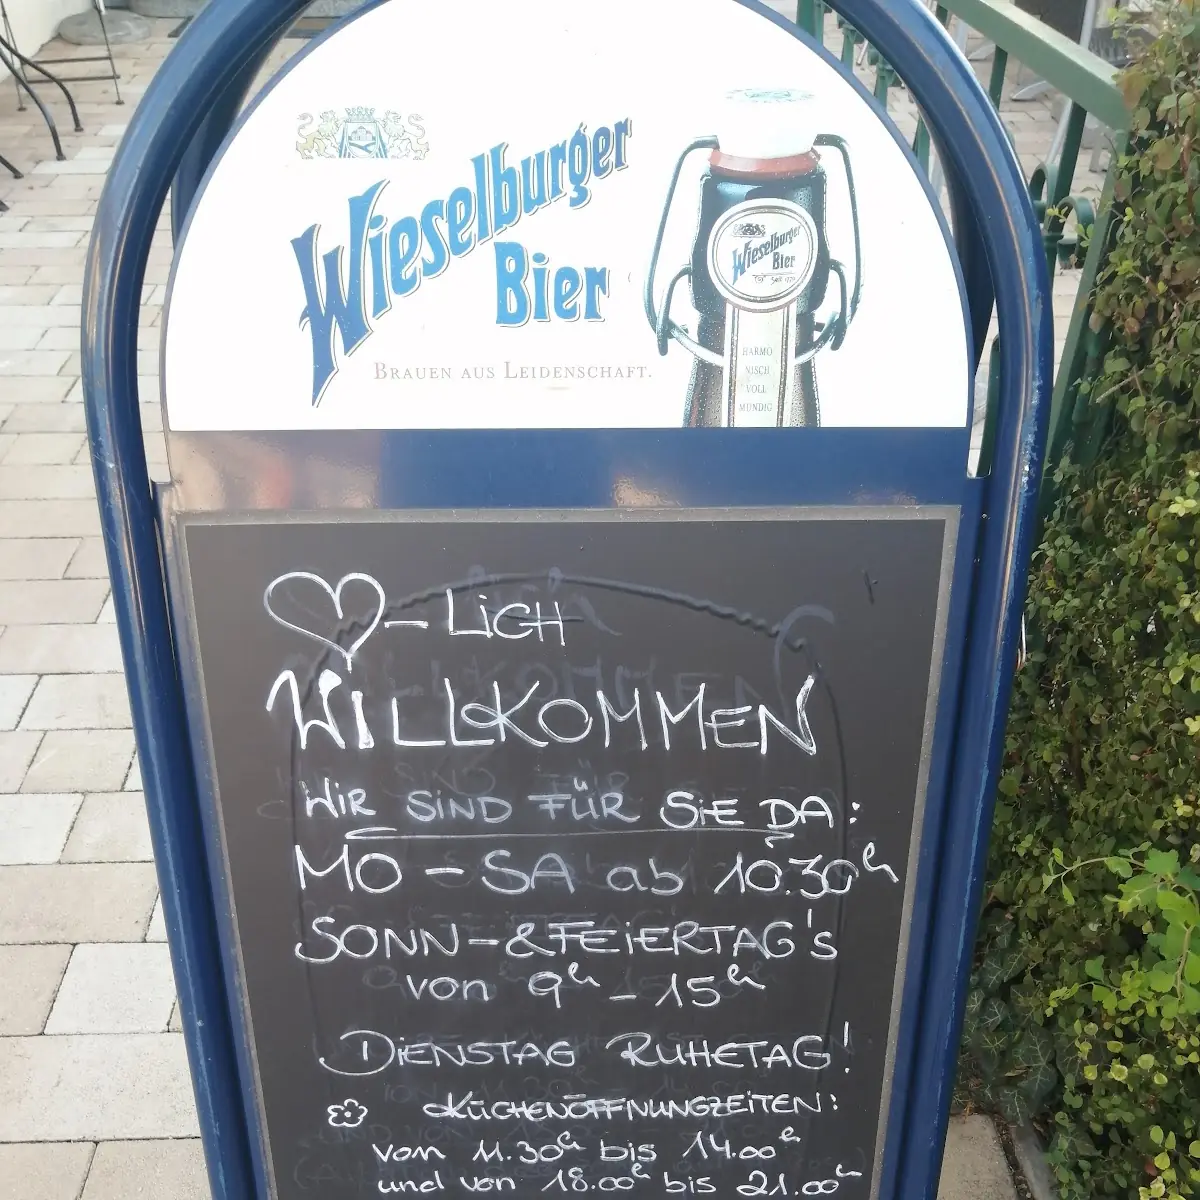 Wieselburger
Bier
BRAUEN AUS LEIDENSCHAFT.
Wieselburger
Bier
HARMO
NISCH
VOLL
MUNDIG
♡- LiCH
WiLLKOMMEN
WiR SiND FÜR SiE DA:
MO - SA ab 10.30h
SONN-&FEiERTAG's
von 9h - 15h
DiENSTAG RUHETAG!
KÜCHENÖFFNUNGZEiTEN:
von 11.30h bis 14.00h
und von 18.00h bis 21.00h